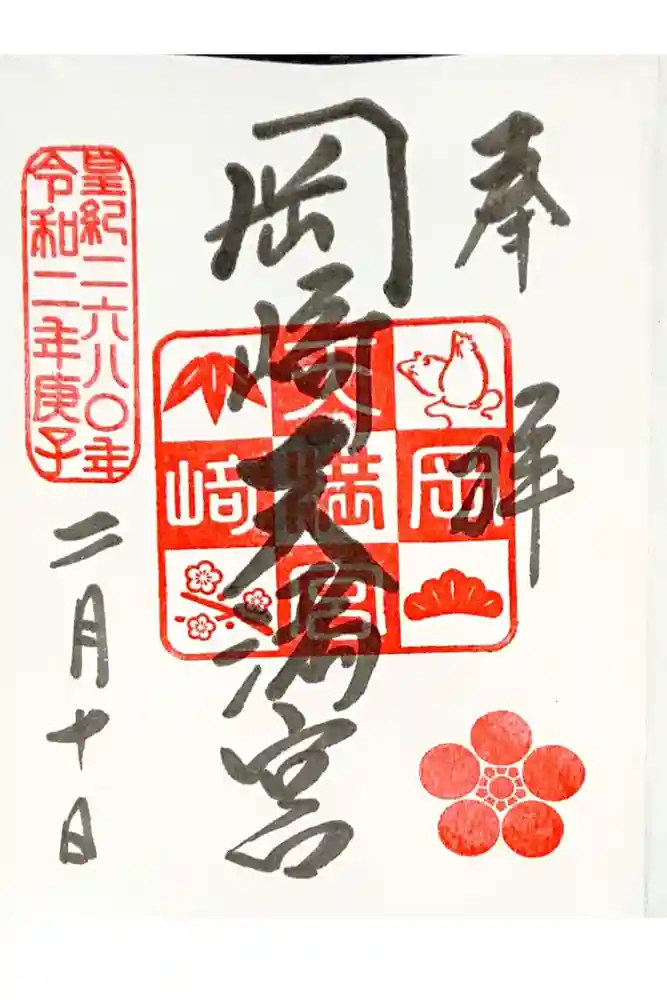 奉拝
岡崎天満宮
岡崎
天満宮
皇紀二六八〇年
令和二年庚子
二月十日